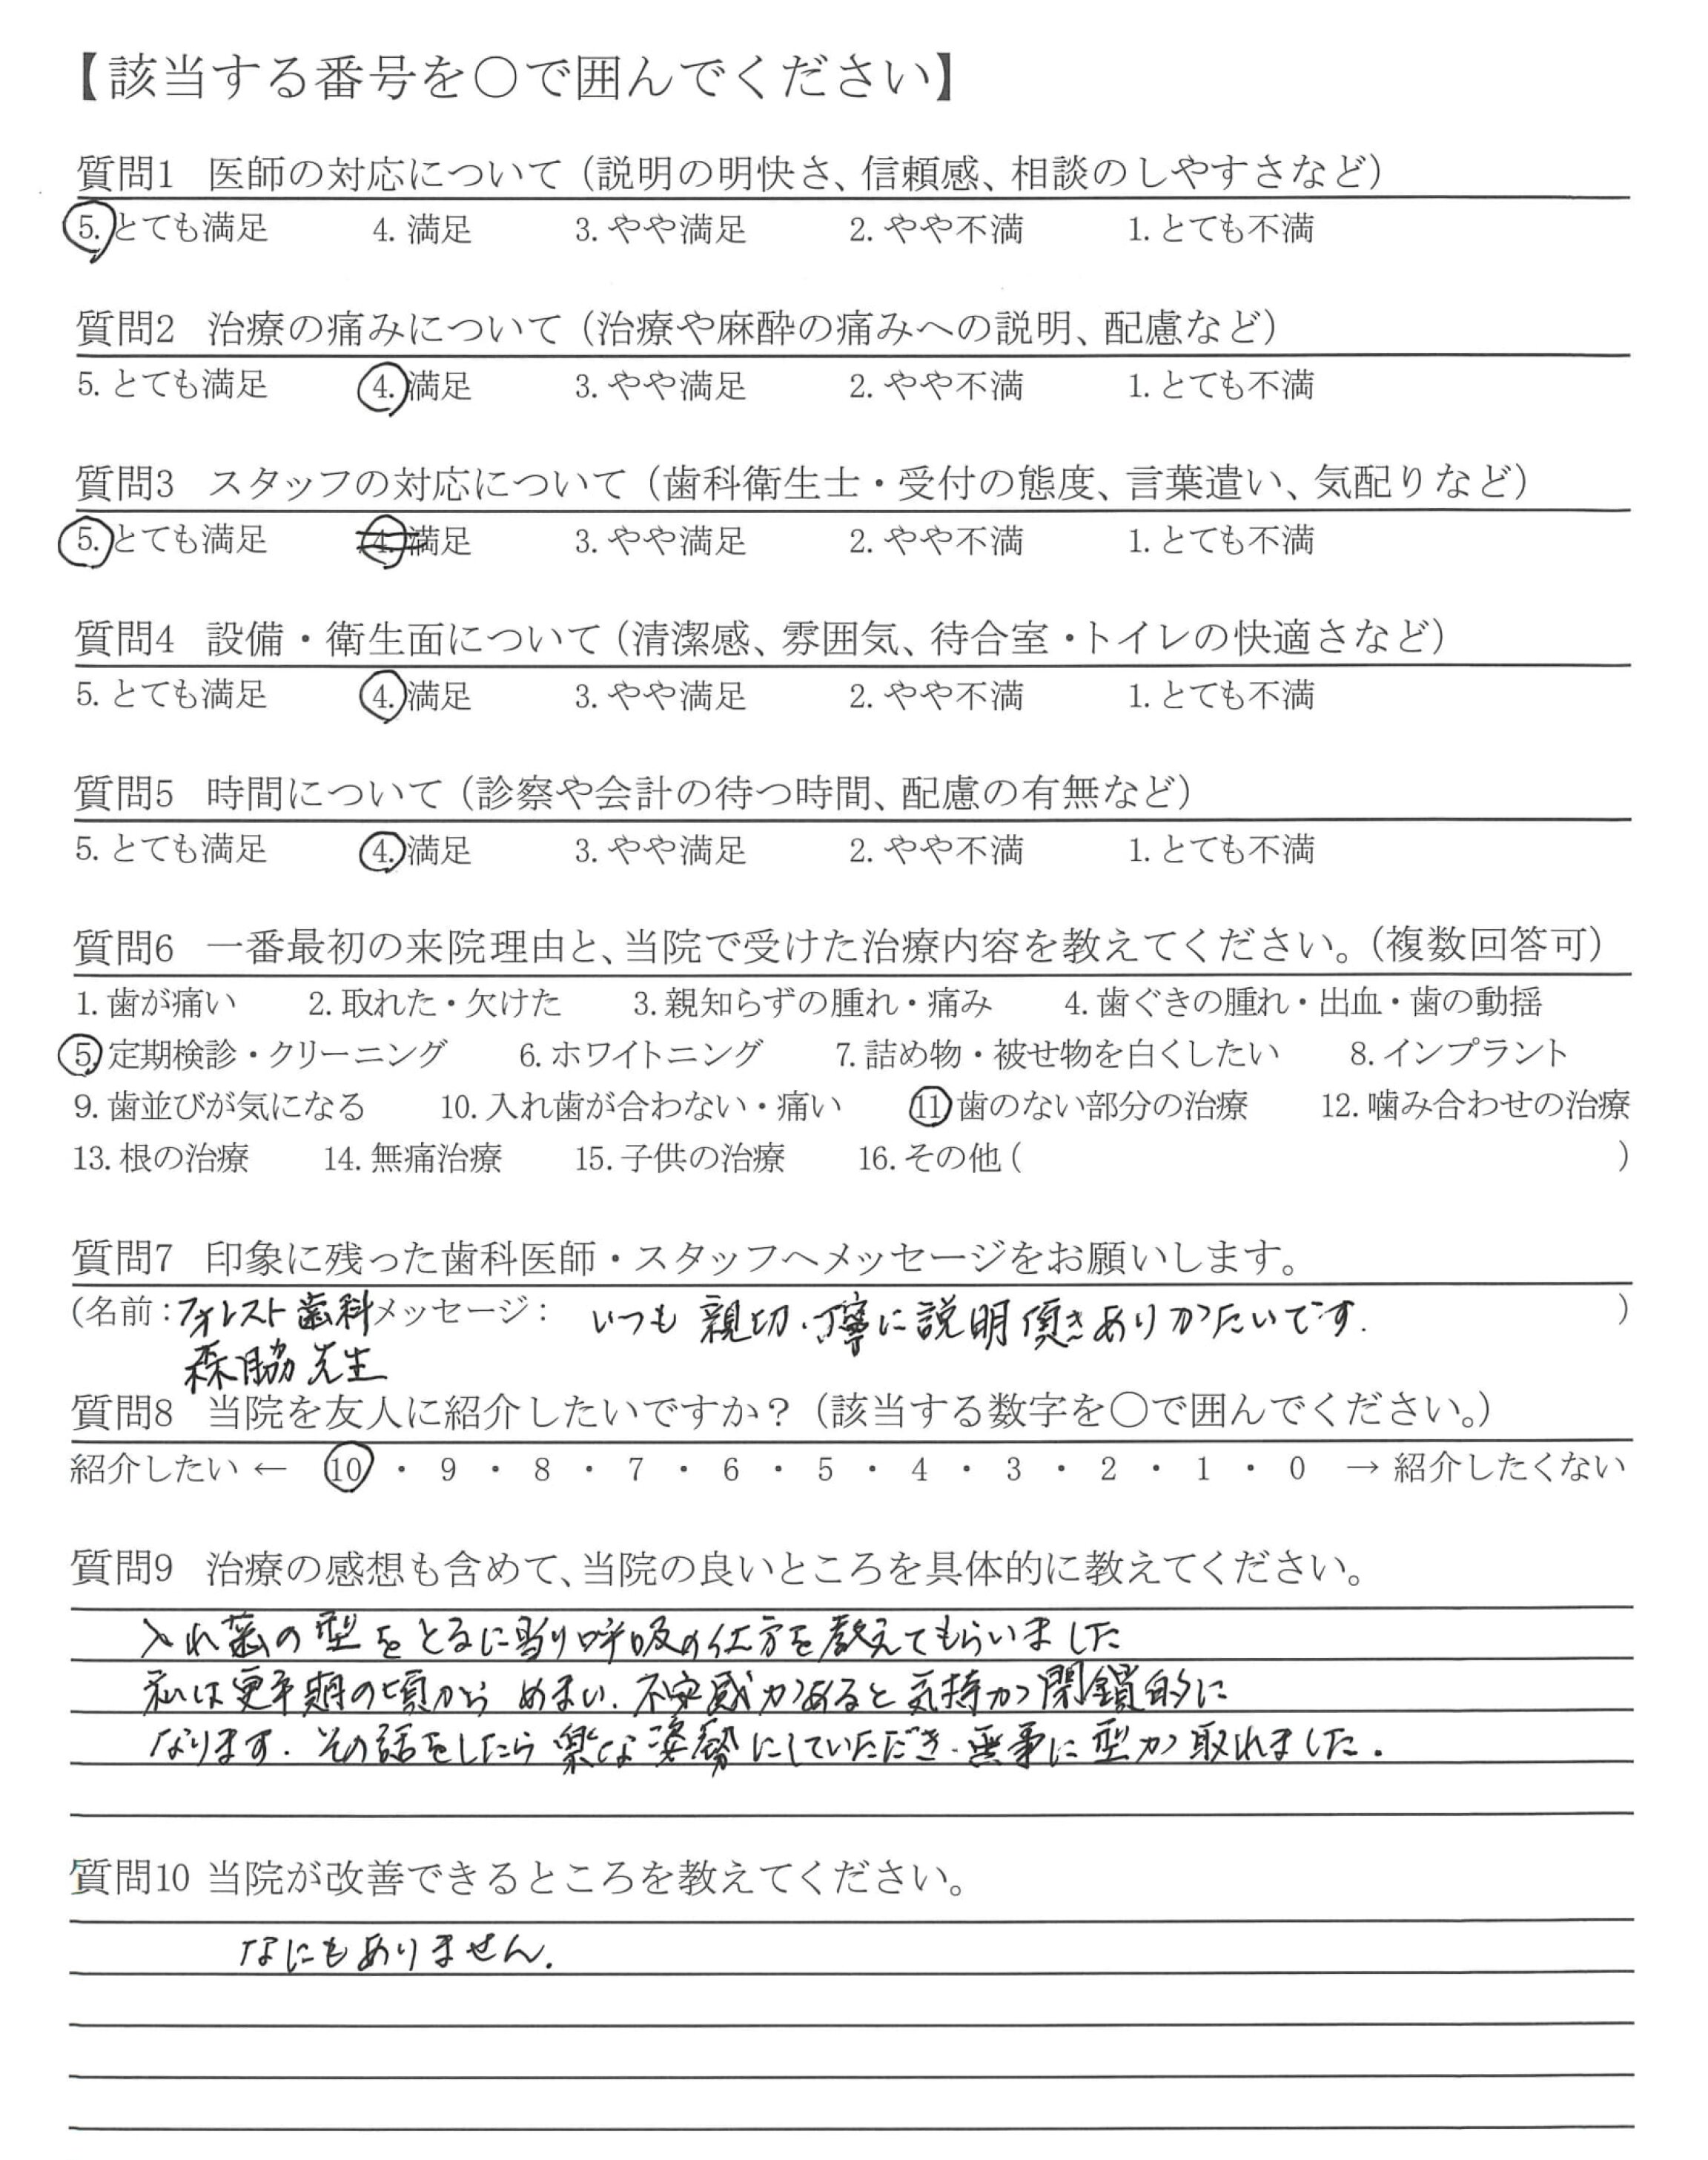 【該当する番号を○で囲んでください】
質問1 医師の対応について（説明の明快さ、信頼感、相談のしやすさなど）
5. とても満足 4. 満足 3. やや満足 2. やや不満 1. とても不満
質問2 治療の痛みについて（治療や麻酔の痛みへの説明、配慮など）
5. とても満足 4. 満足 3. やや満足 2. やや不満 1. とても不満
質問3 スタッフの対応について（歯科衛生士・受付の態度、言葉遣い、気配りなど）
5. とても満足 4. 満足 3. やや満足 2. やや不満 1. とても不満
質問4 設備・衛生面について（清潔感、雰囲気、待合室・トイレの快適さなど）
5. とても満足 4. 満足 3. やや満足 2. やや不満 1. とても不満
質問5 時間について（診察や会計の待つ時間、配慮の有無など）
5. とても満足 4. 満足 3. やや満足 2. やや不満 1. とても不満
質問6 一番最初の来院理由と、当院で受けた治療内容を教えてください。（複数回答可）
1. 歯が痛い 2. 取れた・欠けた 3. 親知らずの腫れ・痛み 4. 歯ぐきの腫れ・出血・歯の動揺
5 定期検診・クリーニング 6. ホワイトニング 7. 詰め物・被せ物を白くしたい 8. インプラント
9. 歯並びが気になる 10. 入れ歯が合わない・痛い 11 歯のない部分の治療 12. 噛み合わせの治療
13. 根の治療 14. 無痛治療 15. 子供の治療 16. その他（ ）
質問7 印象に残った歯科医師・スタッフへメッセージをお願いします。
（名前：フォレスト歯科 メッセージ： いつも親切、丁寧に説明頂きありがたいです. ）
森脇先生
質問8 当院を友人に紹介したいですか？（該当する数字を○で囲んでください。）
紹介したい ← 10 ・ 9 ・ 8 ・ 7 ・ 6 ・ 5 ・ 4 ・ 3 ・ 2 ・ 1 ・ 0 → 紹介したくない
質問9 治療の感想も含めて、当院の良いところを具体的に教えてください。
入れ歯の型をとるに当り呼吸の仕方を教えてもらいました
私は更年期の頃から めまい、不安感があると気持が閉鎖的に
なります. その話をしたら楽な姿勢にしていただき、無事に型が取れました.
質問10 当院が改善できるところを教えてください。
なにもありません.